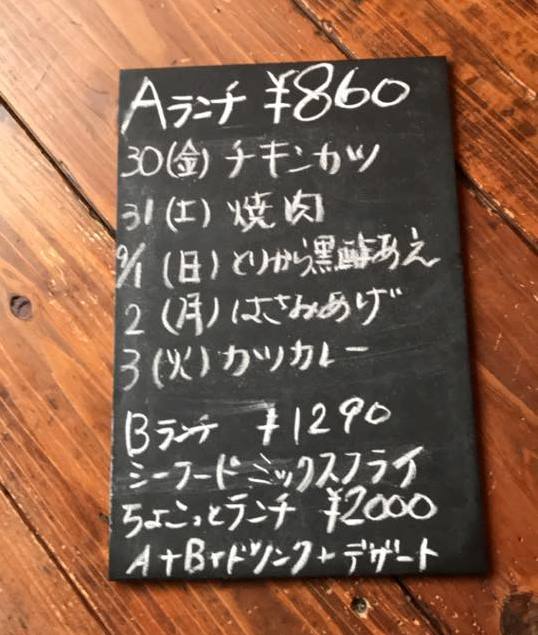 Aランチ ¥860
30(金) チキンカツ
31(土) 焼肉
9/1(日) とりから黒酢あえ
2(月) はさみあげ
3(火) カツカレー
Bランチ ¥1290
シーフードミックスフライ
ちょこっとランチ ¥2000
A+B+ドリンク+デザート